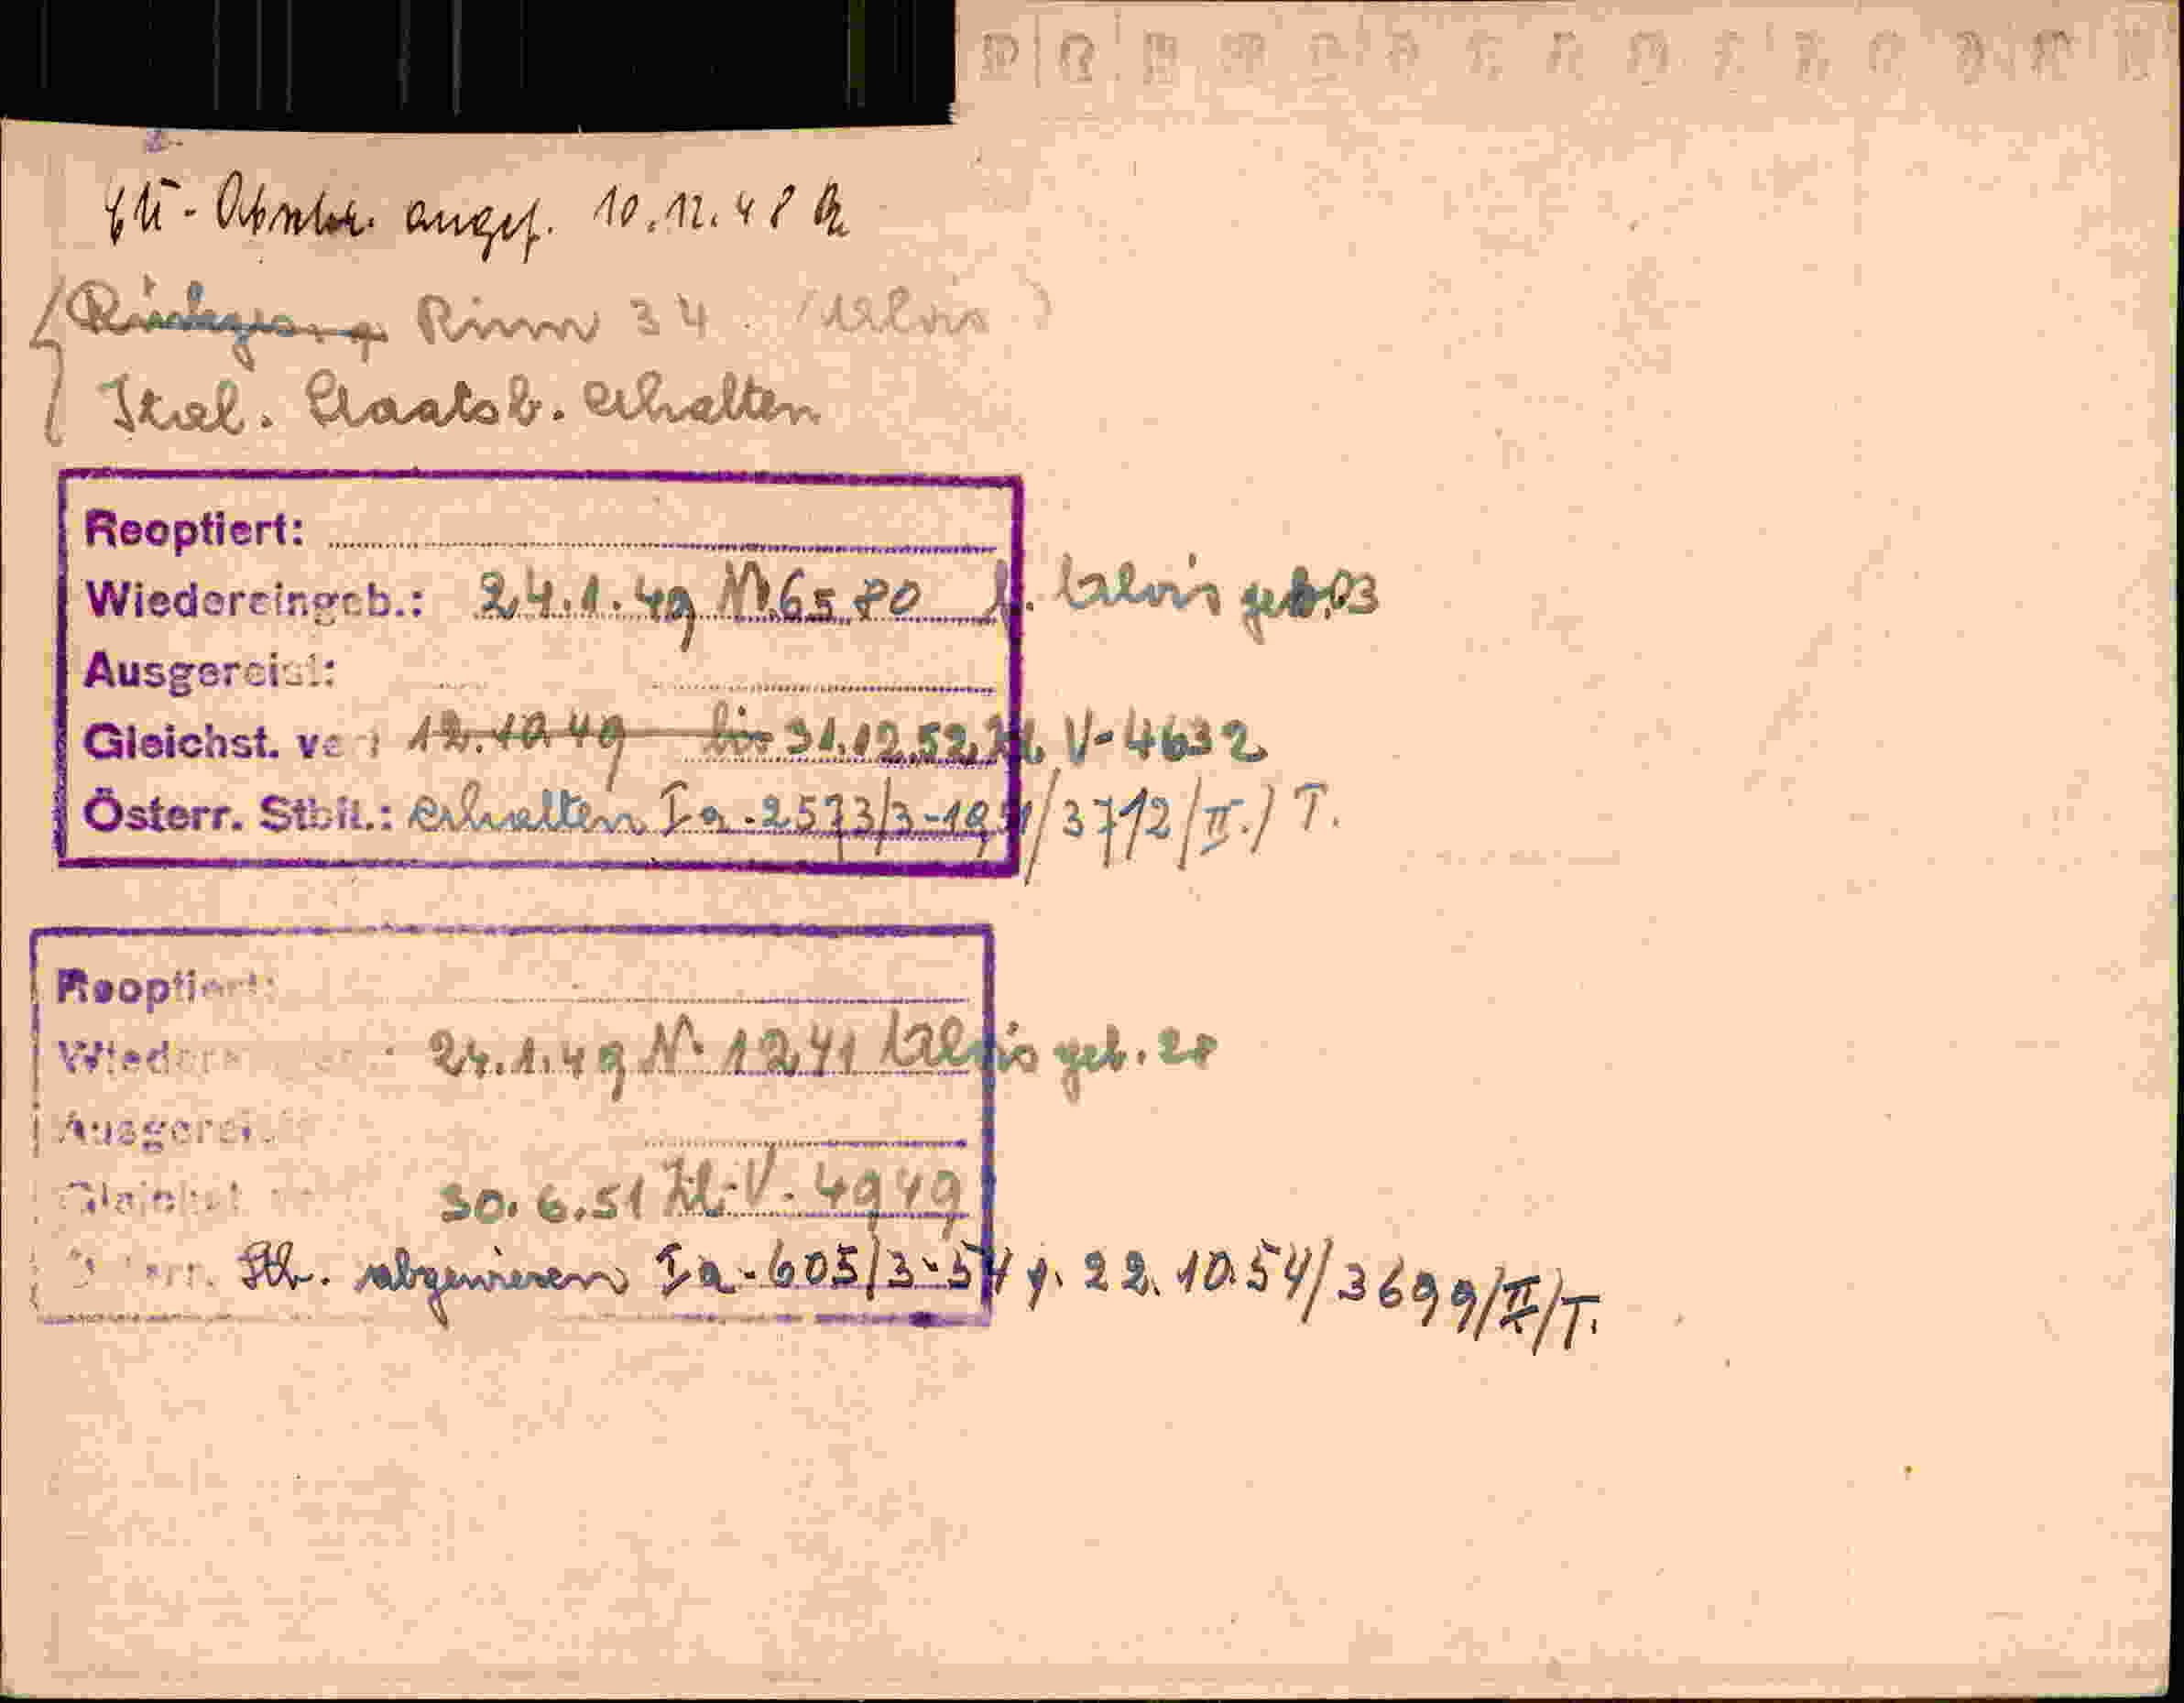 angef. 10.12.48
Rinn 34 (Alois)
Ital. Staatsb. erhalten
Reoptiert:
Wiedereingeb.: 24.1.49 N.6580 Alois geb.03
Ausgereist:
Gleichst. 12.10.49 bis 31.12.52. Zl. V-4632
Österr. Stbft.: erhalten Ia-2573/3-1951/3712/II./T.
Reoptiert:
24.1.49 N. 1241 Alois geb. 28
Ausgereist
30.6.51 Zl. V. 4949
Stb. abgewiesen Ia-605/3-54 v. 22.10.54/3699/II/T.